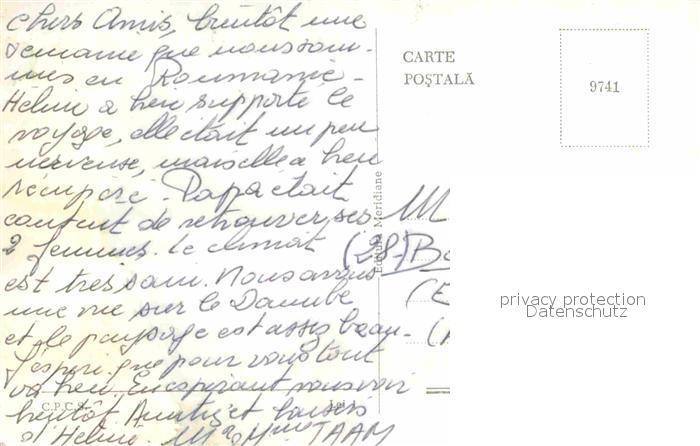 Chers Amis, bientôt une
semaine que nous som-
mes en Roumanie -
a bien supporté le
voyage, elle était un peu
nerveuse, mais elle a bien
récupéré. Papa était
content de retrouver ses
2 femmes. Le climat
est très sain. Nous avons
une vue sur le Danube
et le paysage est assez beau.
J'espère que pour vous tout
va bien. En espérant vous voir
bientôt. Amitiés et baisers
d'
Mr & Mme TAAM
C.P.C.S.
Lei
Editura Meridiane
CARTE
POȘTALĂ
9741
M
(28)
(E
privacy protection
Datenschutz